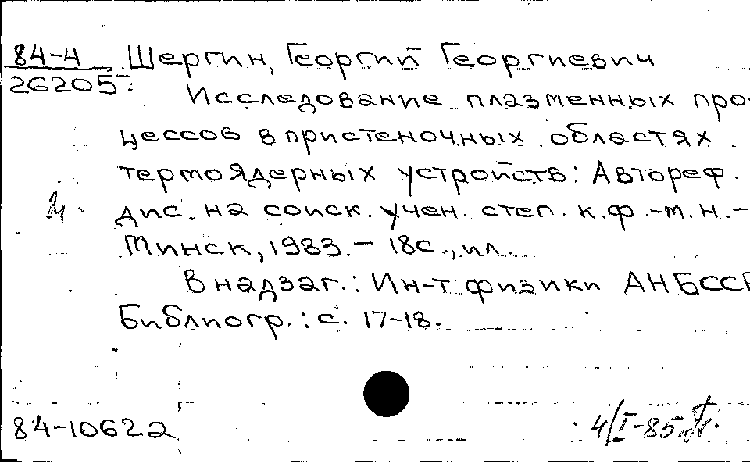 84-4 Шергин, Георгий Георгиевич
26205:
Исследование плазменных про-
цессов в пристеночных областях
термоядерных устройств: Автореф.
дис. на соиск. учен. степ. к.ф.-м.н.-
Минск, 1983.- 18с., ил.
В надзаг.: Ин-т физики АНБССР
Библиогр.: с. 17-18.
84-10622
4/I-85